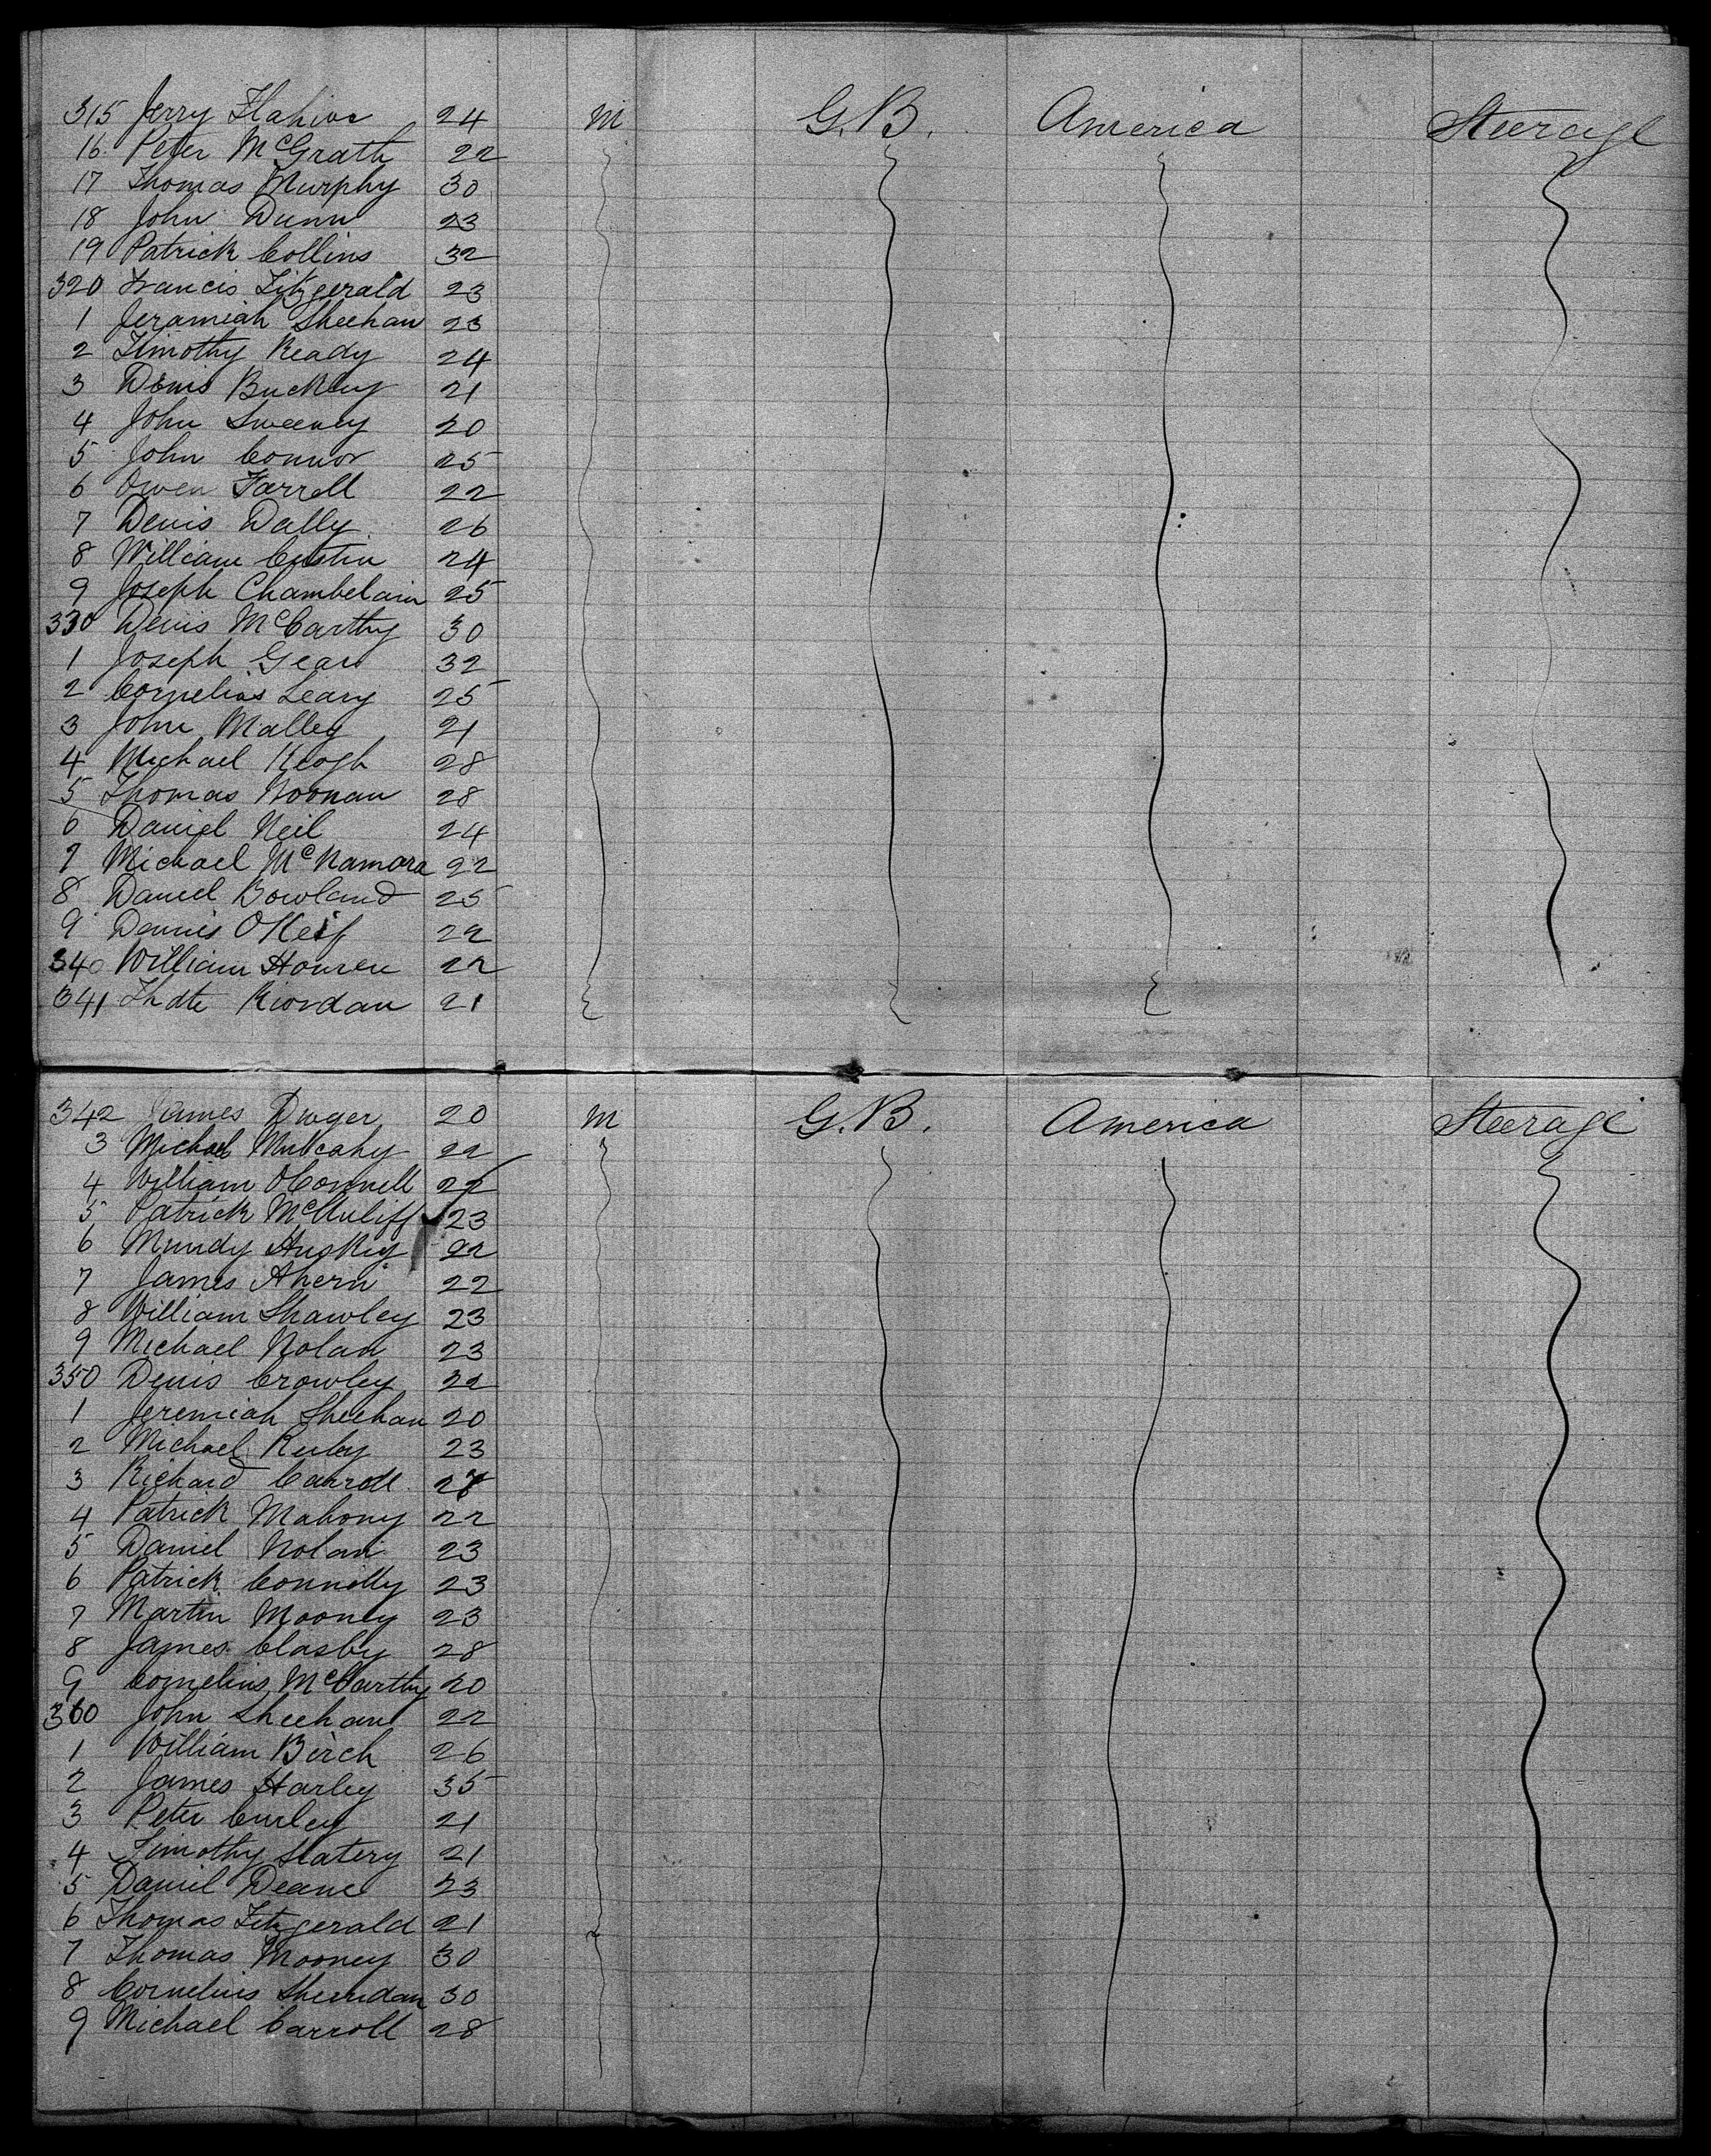 315 Jerry Flahive 24 M G.B. America Steerage
16 Peter McGrath 22
17 Thomas Murphy 30
18 John Dunn 23
19 Patrick Collins 32
320 Francis Fitzgerald 23
1 Jeramiah Sheehan 23
2 Timothy Ready 24
3 Denis Buckley 21
4 John Sweeney 20
5 John Connor 25
6 Owen Farrell 22
7 Denis Dally 26
8 William 24
9 Joseph Chamberlain 25
330 Denis McCarthy 30
1 Joseph Gear 32
2 Cornelius Leary 25
3 John Malley 21
4 Michael Keogh 28
5 Thomas Noonan 28
6 Daniel Neil 24
7 Michael McNamara 22
8 Daniel Bowland 25
9 Dennis OKeif 22
340 William 22
341 Riordan 21
342 James Dwyer 20 M G.B. America Steerage
3 Michael Mulcahy 22
4 William OConnell 22
5 Patrick McAuliff 23
6 Mundy Huskey 22
7 James Ahern 22
8 William Shawley 23
9 Michael Nolan 23
350 Denis Crowley 22
1 Jeremiah Sheehan 20
2 Michael Ruby 23
3 Richard Carroll
4 Patrick Mahony 22
5 Daniel Nolan 23
6 Patrick Connolly 23
7 Martin Mooney 23
8 James Clasby 28
9 Cornelius McCarthy 20
360 John Sheehan 22
1 William Birch 26
2 James Harley 35
3 Peter Curley 21
4 Timothy Slatery 21
5 Daniel Deane 23
6 Thomas Fitzgerald 21
7 Thomas Mooney 30
8 Cornelius Sheridan 30
9 Michael Carroll 28